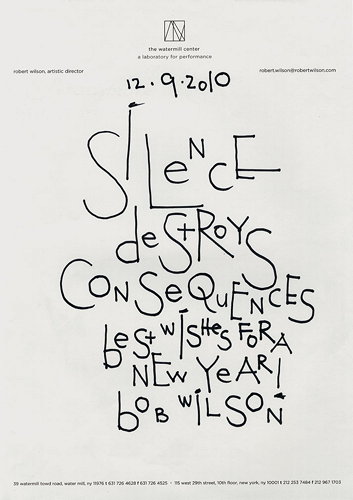 the watermill center
a laboratory for performance
robert wilson, artistic director
robert.wilson@robertwilson.com
12.9.2010
SiLeNCE
deStRoYS
CoNSeQuENCES
beSt wiSHeS FoR A
NEW YeAR!
boB WiLSoN
39 watermill towd road, water mill, ny 11976 t 631 726 4628 f 631 726 4525 • 115 west 29th street, 10th floor, new york, ny 10001 t 212 253 7484 f 212 967 1703